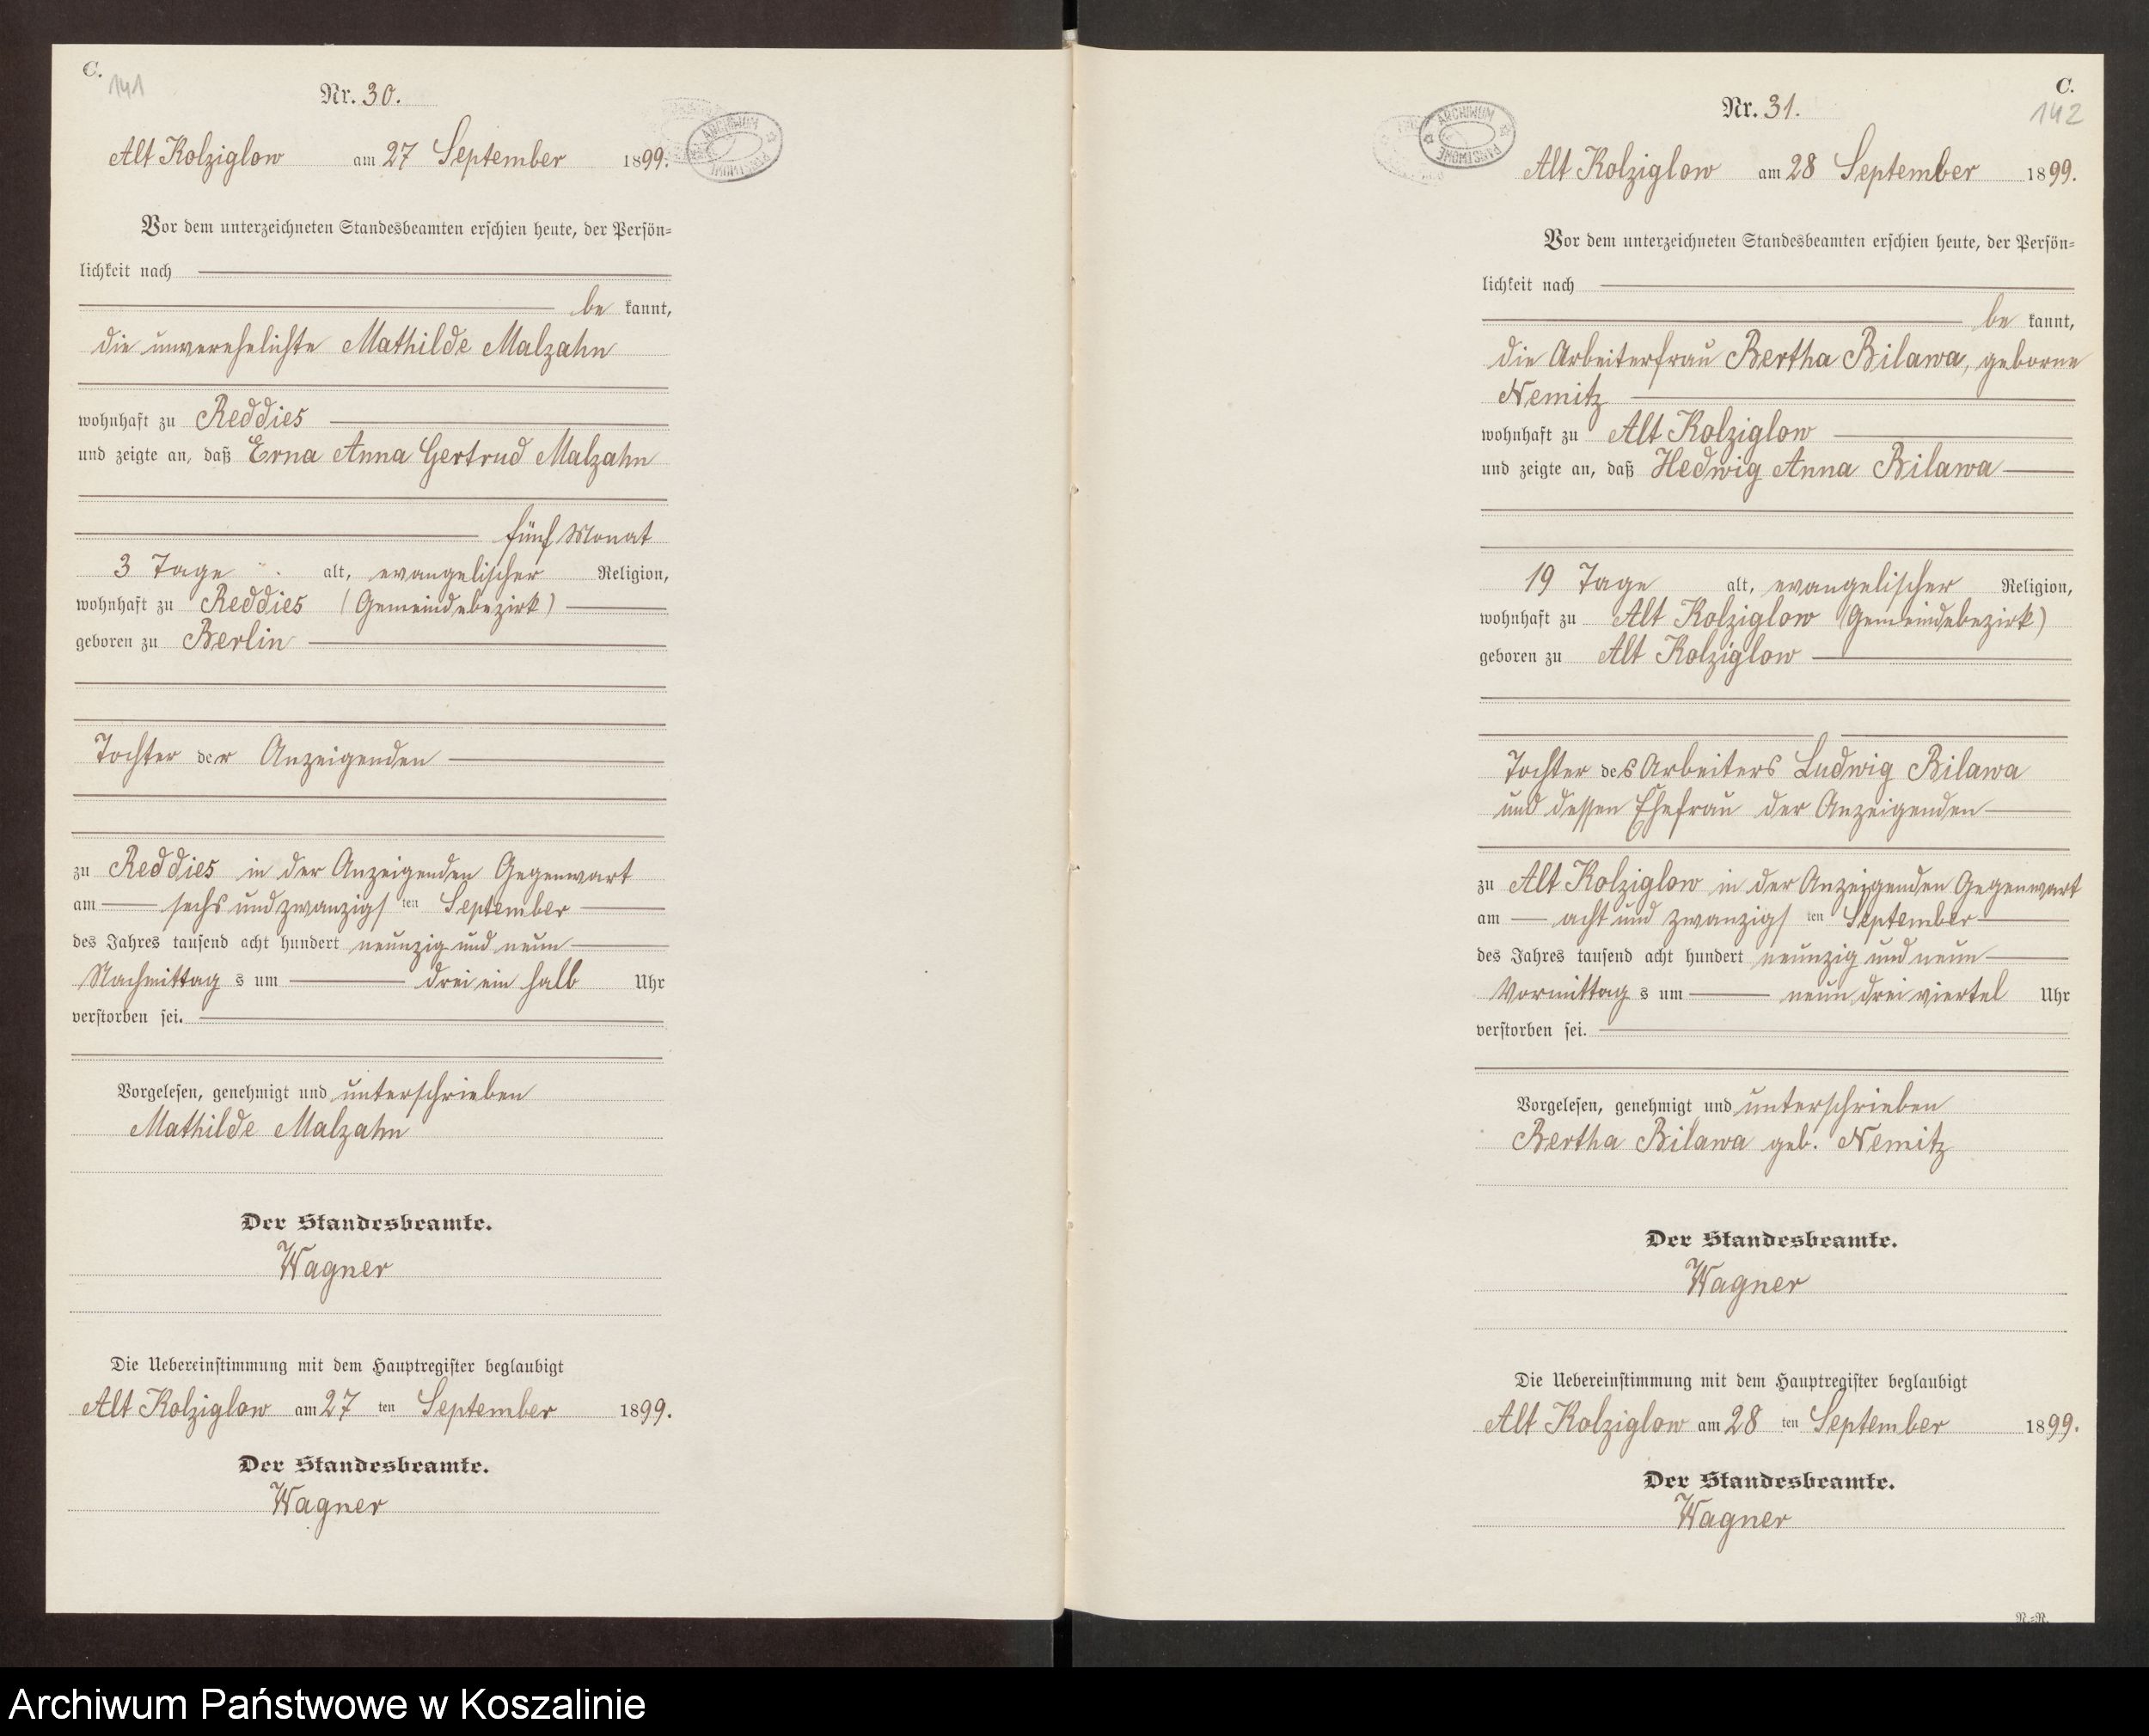 C.
141
Nr. 30.
Alt Kolziglow am 27 September 1899.
ARCHIWUM PAŃSTWOWE
Vor dem unterzeichneten Standesbeamten erschien heute, der Persön-
lichkeit nach
be kannt,
die unverehelichte Mathilde Malzahn
wohnhaft zu Reddies
und zeigte an, daß Erna Anna Gertrud Malzahn
fünf Monat
3 Tage alt, evangelischer Religion,
wohnhaft zu Reddies (Gemeindebezirk)
geboren zu Berlin
Tochter der Anzeigenden
zu Reddies in der Anzeigenden Gegenwart
am sechs und zwanzigs ten September
des Jahres tausend acht hundert neunzig und neun
Nachmittag s um drei ein halb Uhr
verstorben sei.
Vorgelesen, genehmigt und unterschrieben
Mathilde Malzahn
Der Standesbeamte.
Wagner
Die Uebereinstimmung mit dem Hauptregister beglaubigt
Alt Kolziglow am 27 ten September 1899.
Der Standesbeamte.
Wagner
C.
142
Nr. 31.
ARCHIWUM PAŃSTWOWE
Alt Kolziglow am 28 September 1899.
Vor dem unterzeichneten Standesbeamten erschien heute, der Persön-
lichkeit nach
be kannt,
die Arbeiterfrau Bertha Bilawa, geborne
Nemitz
wohnhaft zu Alt Kolziglow
und zeigte an, daß Hedwig Anna Bilawa
19 Tage alt, evangelischer Religion,
wohnhaft zu Alt Kolziglow (Gemeindebezirk)
geboren zu Alt Kolziglow
Tochter des Arbeiters Ludwig Bilawa
und dessen Ehefrau der Anzeigenden
zu Alt Kolziglow in der Anzeigenden Gegenwart
am acht und zwanzigs ten September
des Jahres tausend acht hundert neunzig und neun
Vormittag s um neun drei viertel Uhr
verstorben sei.
Vorgelesen, genehmigt und unterschrieben
Bertha Bilawa geb. Nemitz
Der Standesbeamte.
Wagner
Die Uebereinstimmung mit dem Hauptregister beglaubigt
Alt Kolziglow am 28 ten September 1899.
Der Standesbeamte.
Wagner
R.-R.
Archiwum Państwowe w Koszalinie